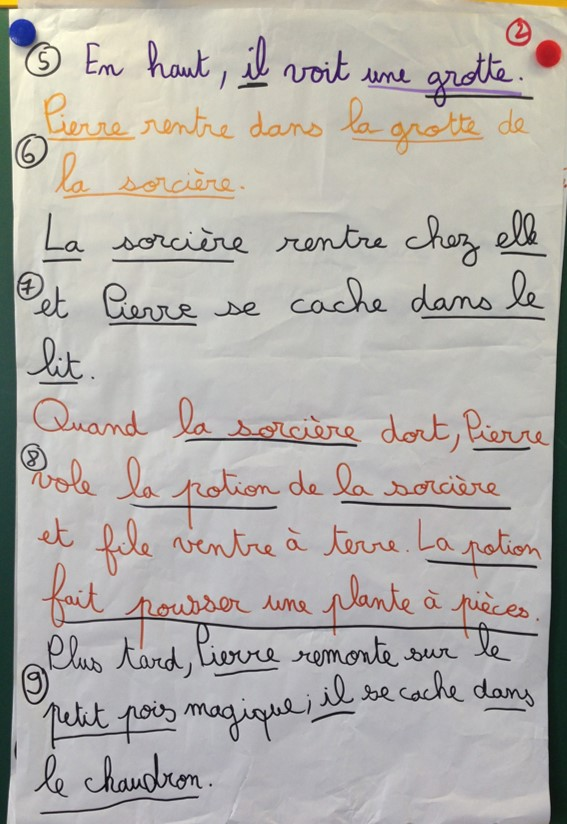 2
5 En haut, il voit une grotte.
Pierre rentre dans la grotte de
6
la sorcière.
La sorcière rentre chez elle
7 et Pierre se cache dans le
lit.
Quand la sorcière dort, Pierre
8 vole la potion de la sorcière
et file ventre à terre. La potion
fait pousser une plante à pièces.
Plus tard, Pierre remonte sur le
9 petit pois magique; il se cache dans
le chaudron.